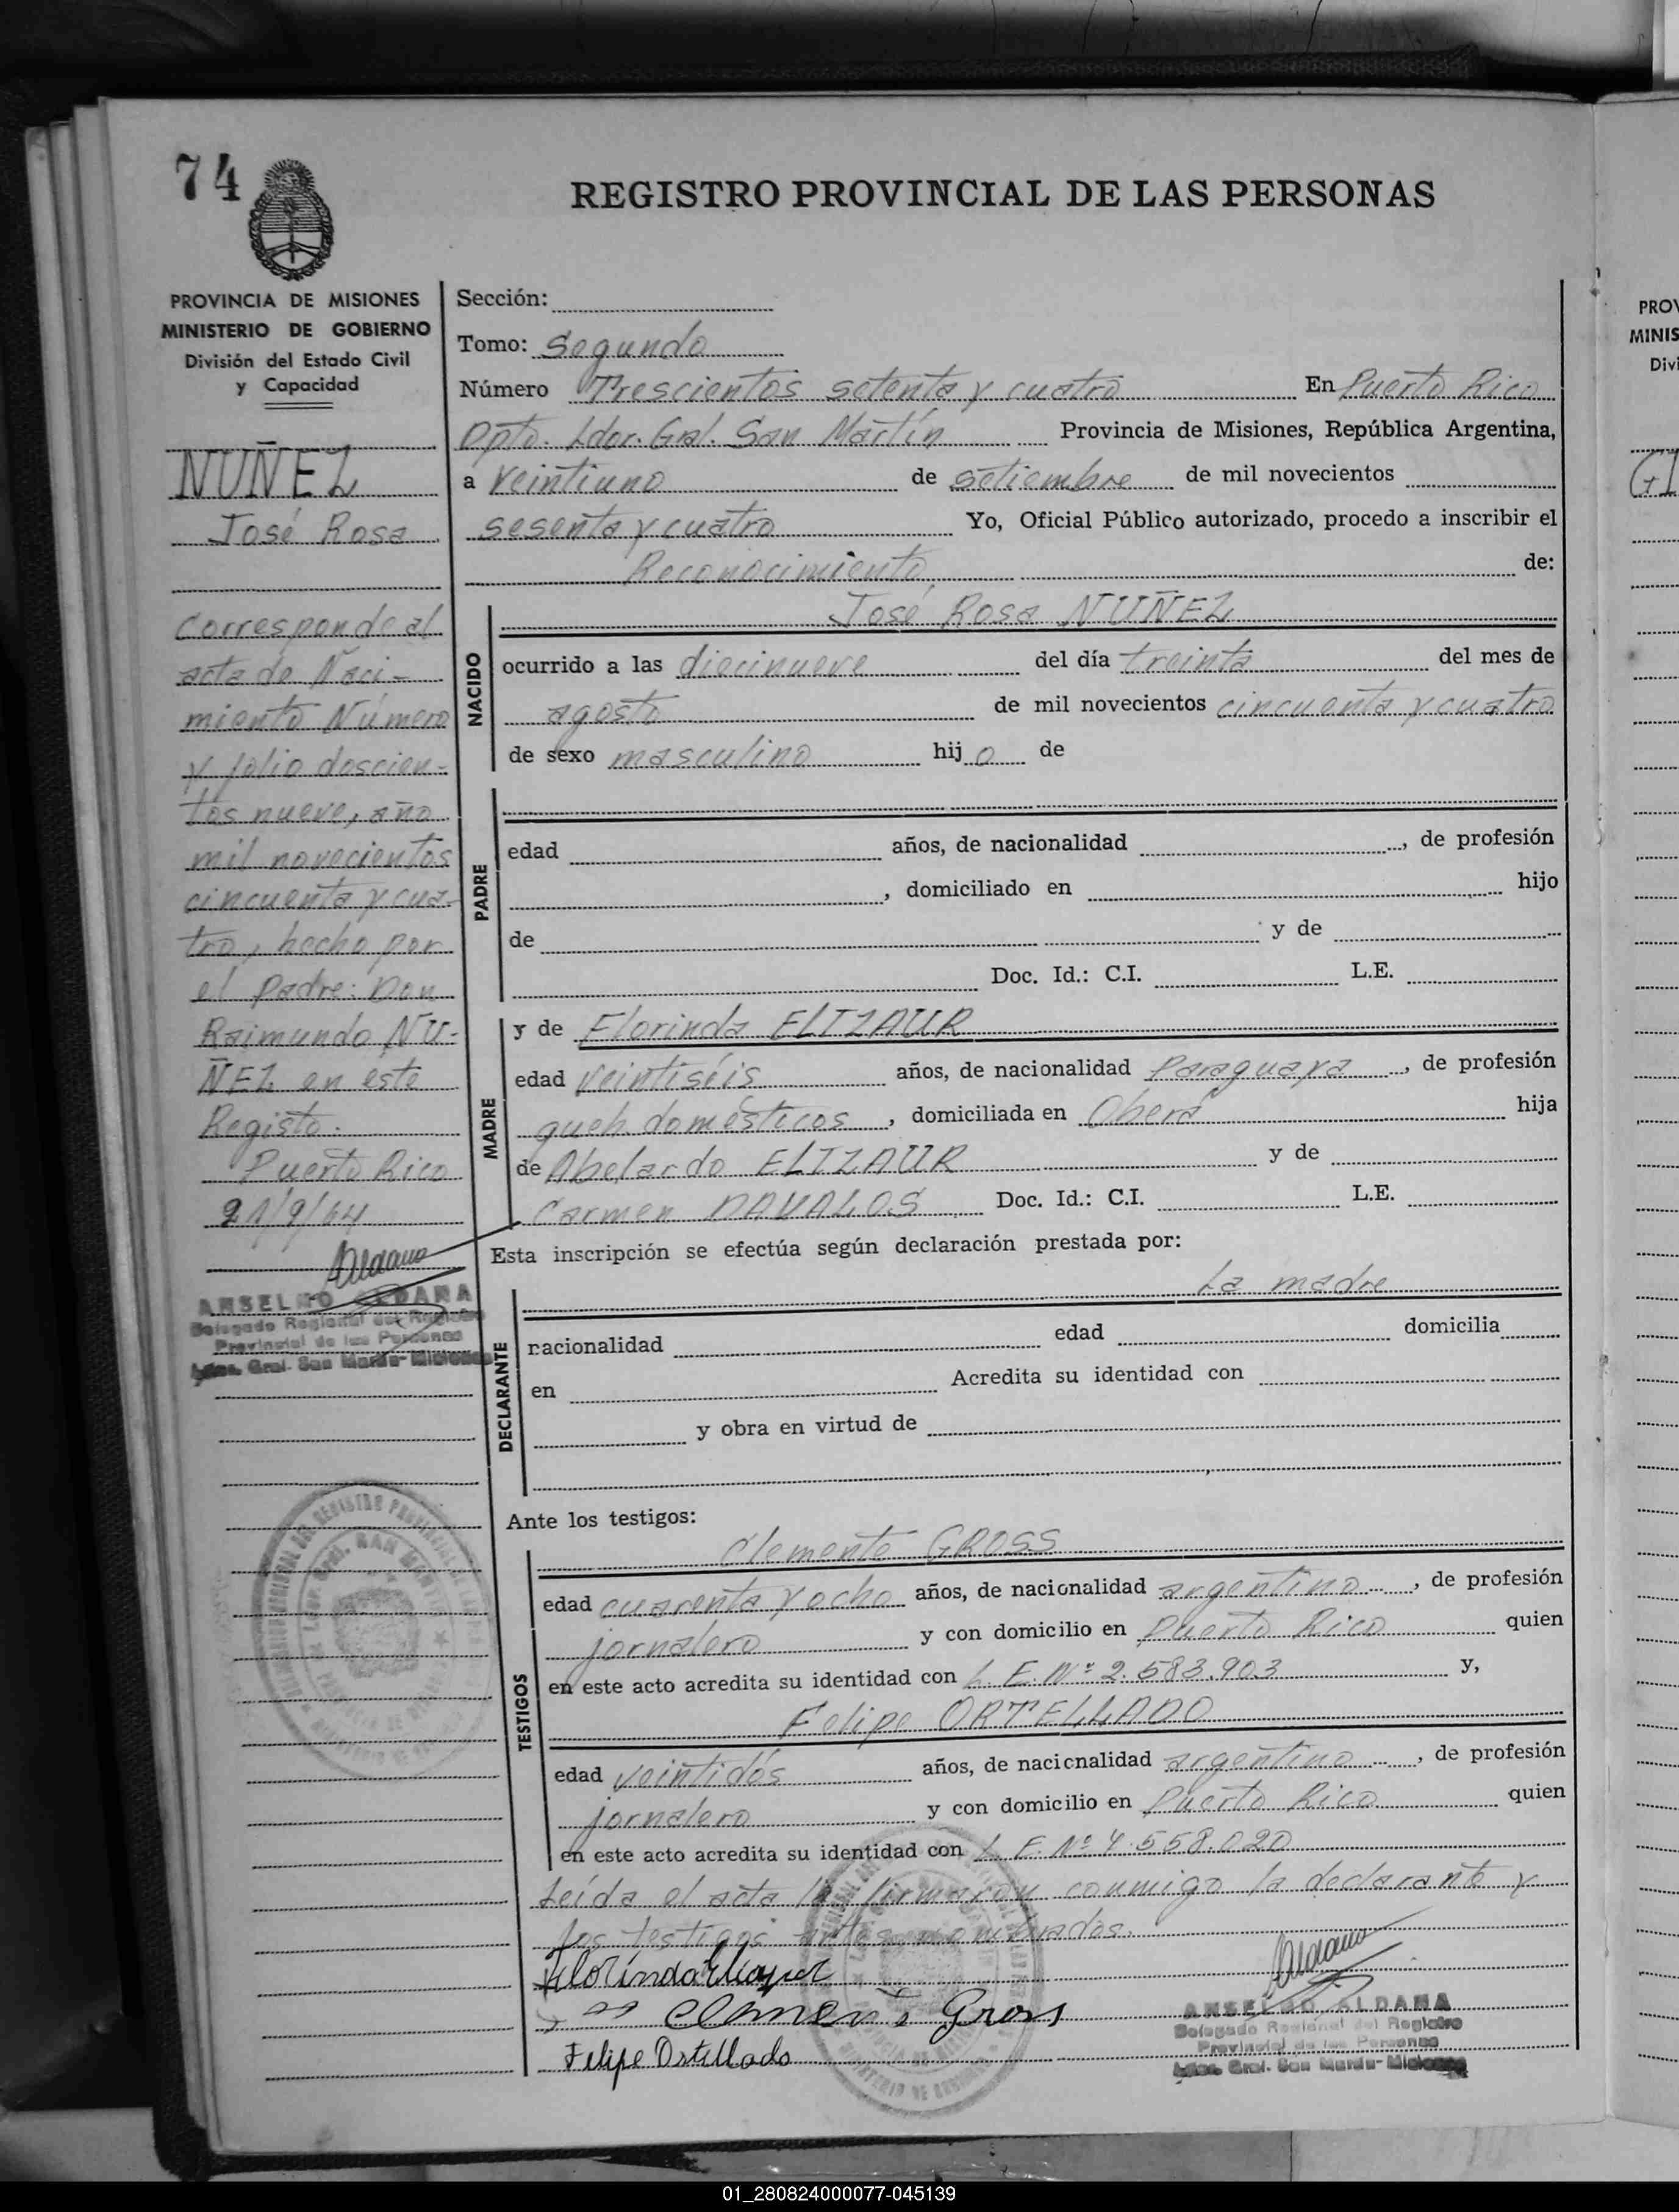 74
REGISTRO PROVINCIAL DE LAS PERSONAS
PROVINCIA DE MISIONES
MINISTERIO DE GOBIERNO
División del Estado Civil
y Capacidad
NUÑEZ
José Rosa
Corresponde al
acta de Naci-
miento Número
y folio doscien-
tos nueve, año
mil novecientos
cincuenta y cua-
tro, hecho por
el Padre: Don
Raimundo NU-
ÑEZ en este
Registo.
Puerto Rico
21/9/64
Aldana
ANSELMO ALDANA
Delegado Regional del Registro
Provincial de las Personas
Ldor. Gral. San Martín-Misiones
Sección:
Tomo: Segundo
Número Trescientos setenta y cuatro En Puerto Rico
Dpto. Ldor. Gral. San Martín Provincia de Misiones, República Argentina,
a veintiuno de setiembre de mil novecientos
sesenta y cuatro Yo, Oficial Público autorizado, procedo a inscribir el
Reconocimiento de:
NACIDO
José Rosa NUÑEZ
ocurrido a las diecinueve del día treinta del mes de
agosto de mil novecientos cincuenta y cuatro
de sexo masculino hijo de
PADRE
edad años, de nacionalidad , de profesión
, domiciliado en hijo
de y de
Doc. Id.: C.I. L.E.
MADRE
y de Florinda ELIZAUR
edad veintiséis años, de nacionalidad Paraguaya , de profesión
queh. domésticos , domiciliada en Oberá hija
de Abelardo ELIZAUR y de
Carmen DAVALOS Doc. Id.: C.I. L.E.
Esta inscripción se efectúa según declaración prestada por:
DECLARANTE
La madre
nacionalidad edad domicilia
en Acredita su identidad con
y obra en virtud de
Ante los testigos:
TESTIGOS
Clemente GROSS
edad cuarenta y ocho años, de nacionalidad argentino , de profesión
jornalero y con domicilio en Puerto Rico quien
en este acto acredita su identidad con L. E. Nº 2.583.903 y,
Felipe ORTELLADO
edad veintidós años, de nacionalidad argentino , de profesión
jornalero y con domicilio en Puerto Rico quien
en este acto acredita su identidad con L. E. Nº 4.558.020
Leída el acta la firmaron conmigo la declarante y
los testigos antes nombrados.
Florinda
Clemente Gross
Felipe Ortellado
Aldana
ANSELMO ALDANA
Delegado Regional del Registro
Provincial de las Personas
Ldor. Gral. San Martín-Misiones
PROV
MINIS
Divi
GI
01_280824000077-045139